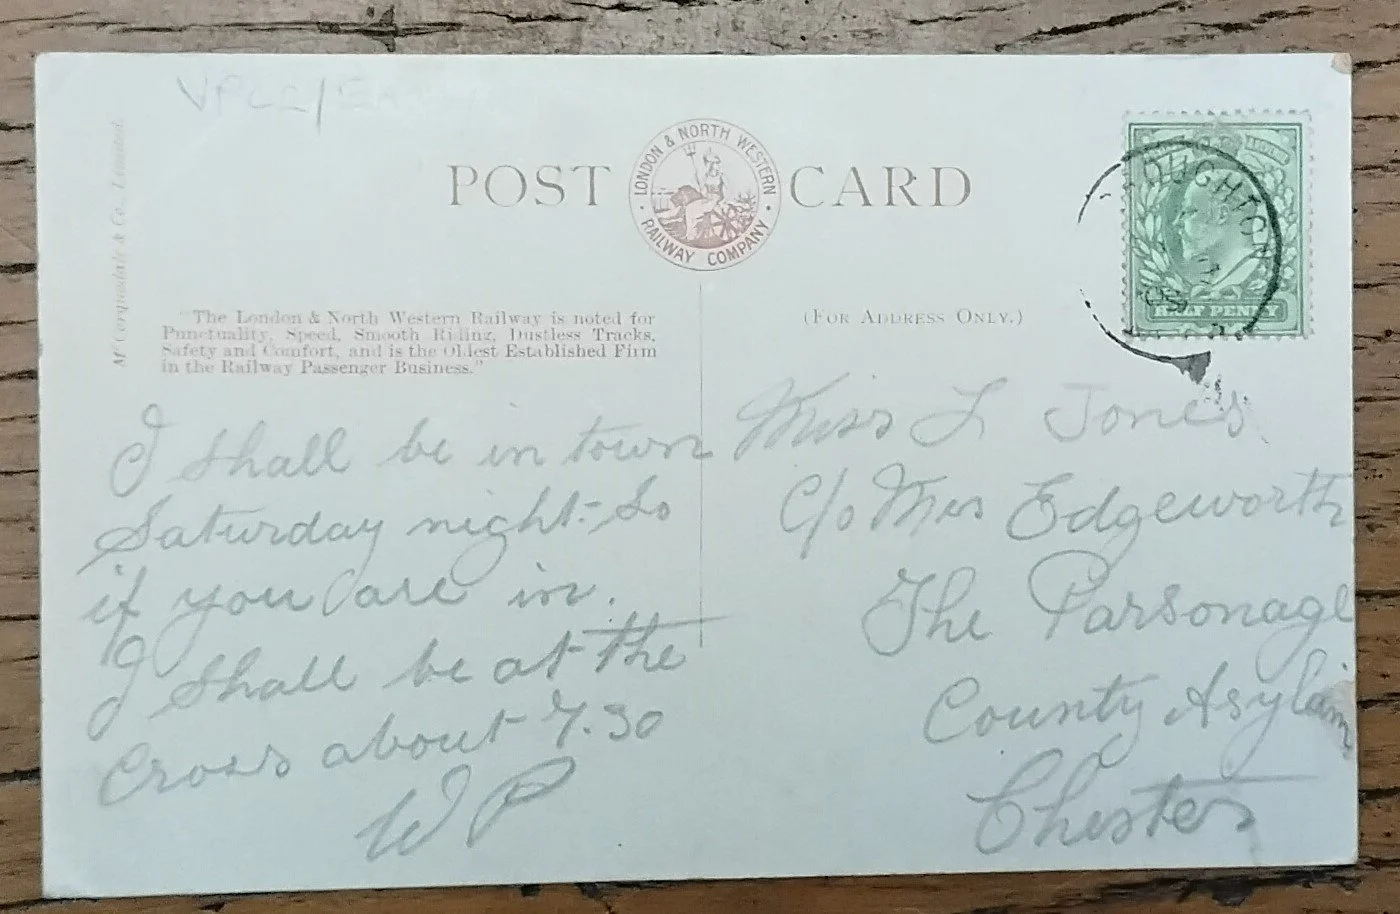 POST CARD
LONDON & NORTH WESTERN
RAILWAY COMPANY
Mc Corquodale & Co., Limited.
"The London & North Western Railway is noted for
Punctuality, Speed, Smooth Riding, Dustless Tracks,
Safety and Comfort, and is the Oldest Established Firm
in the Railway Passenger Business."
(FOR ADDRESS ONLY.)
HALF PENNY
I shall be in town
Saturday night. So
if you care in.
I shall be at the
Cross about 7.30
W P
Miss L Jones
c/o Mrs Edgeworth
The Parsonage
County Asylum
Chester